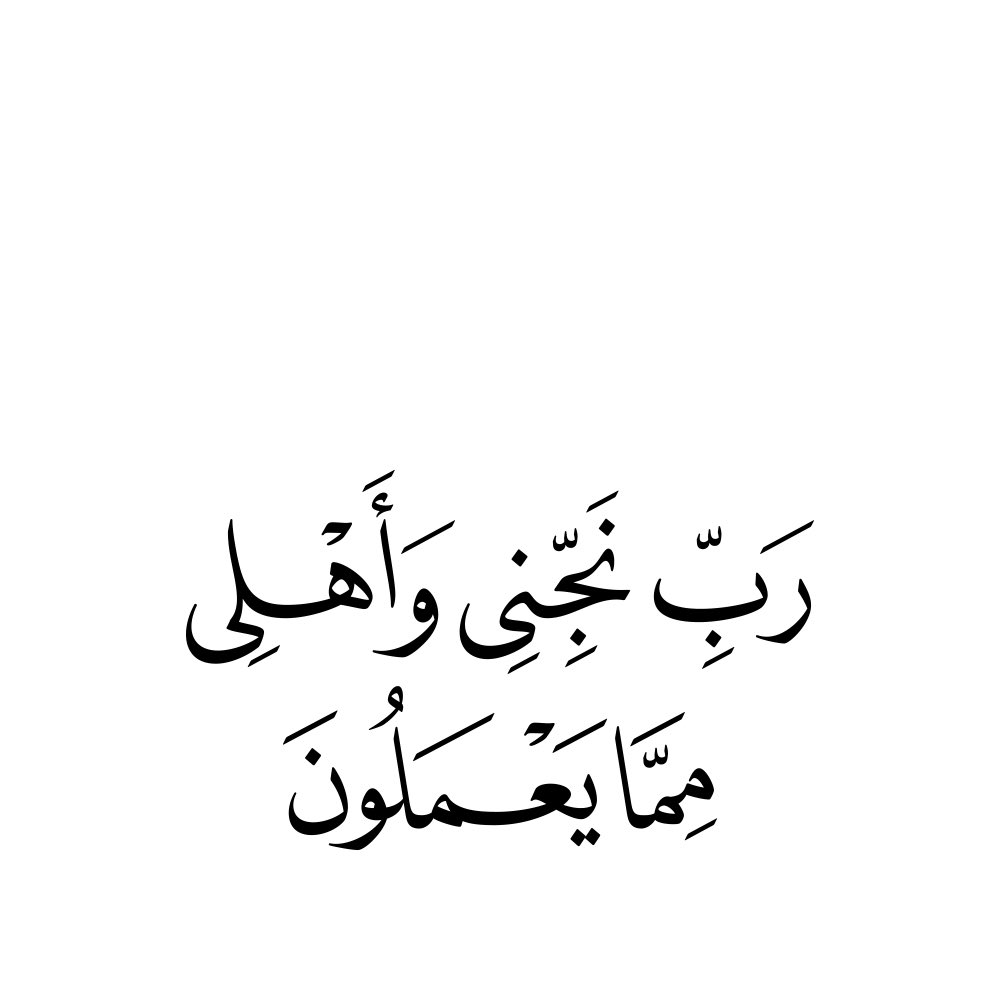 رَبِّ نَجِّنِى وَأَهْلِى
مِمَّا يَعْمَلُونَ